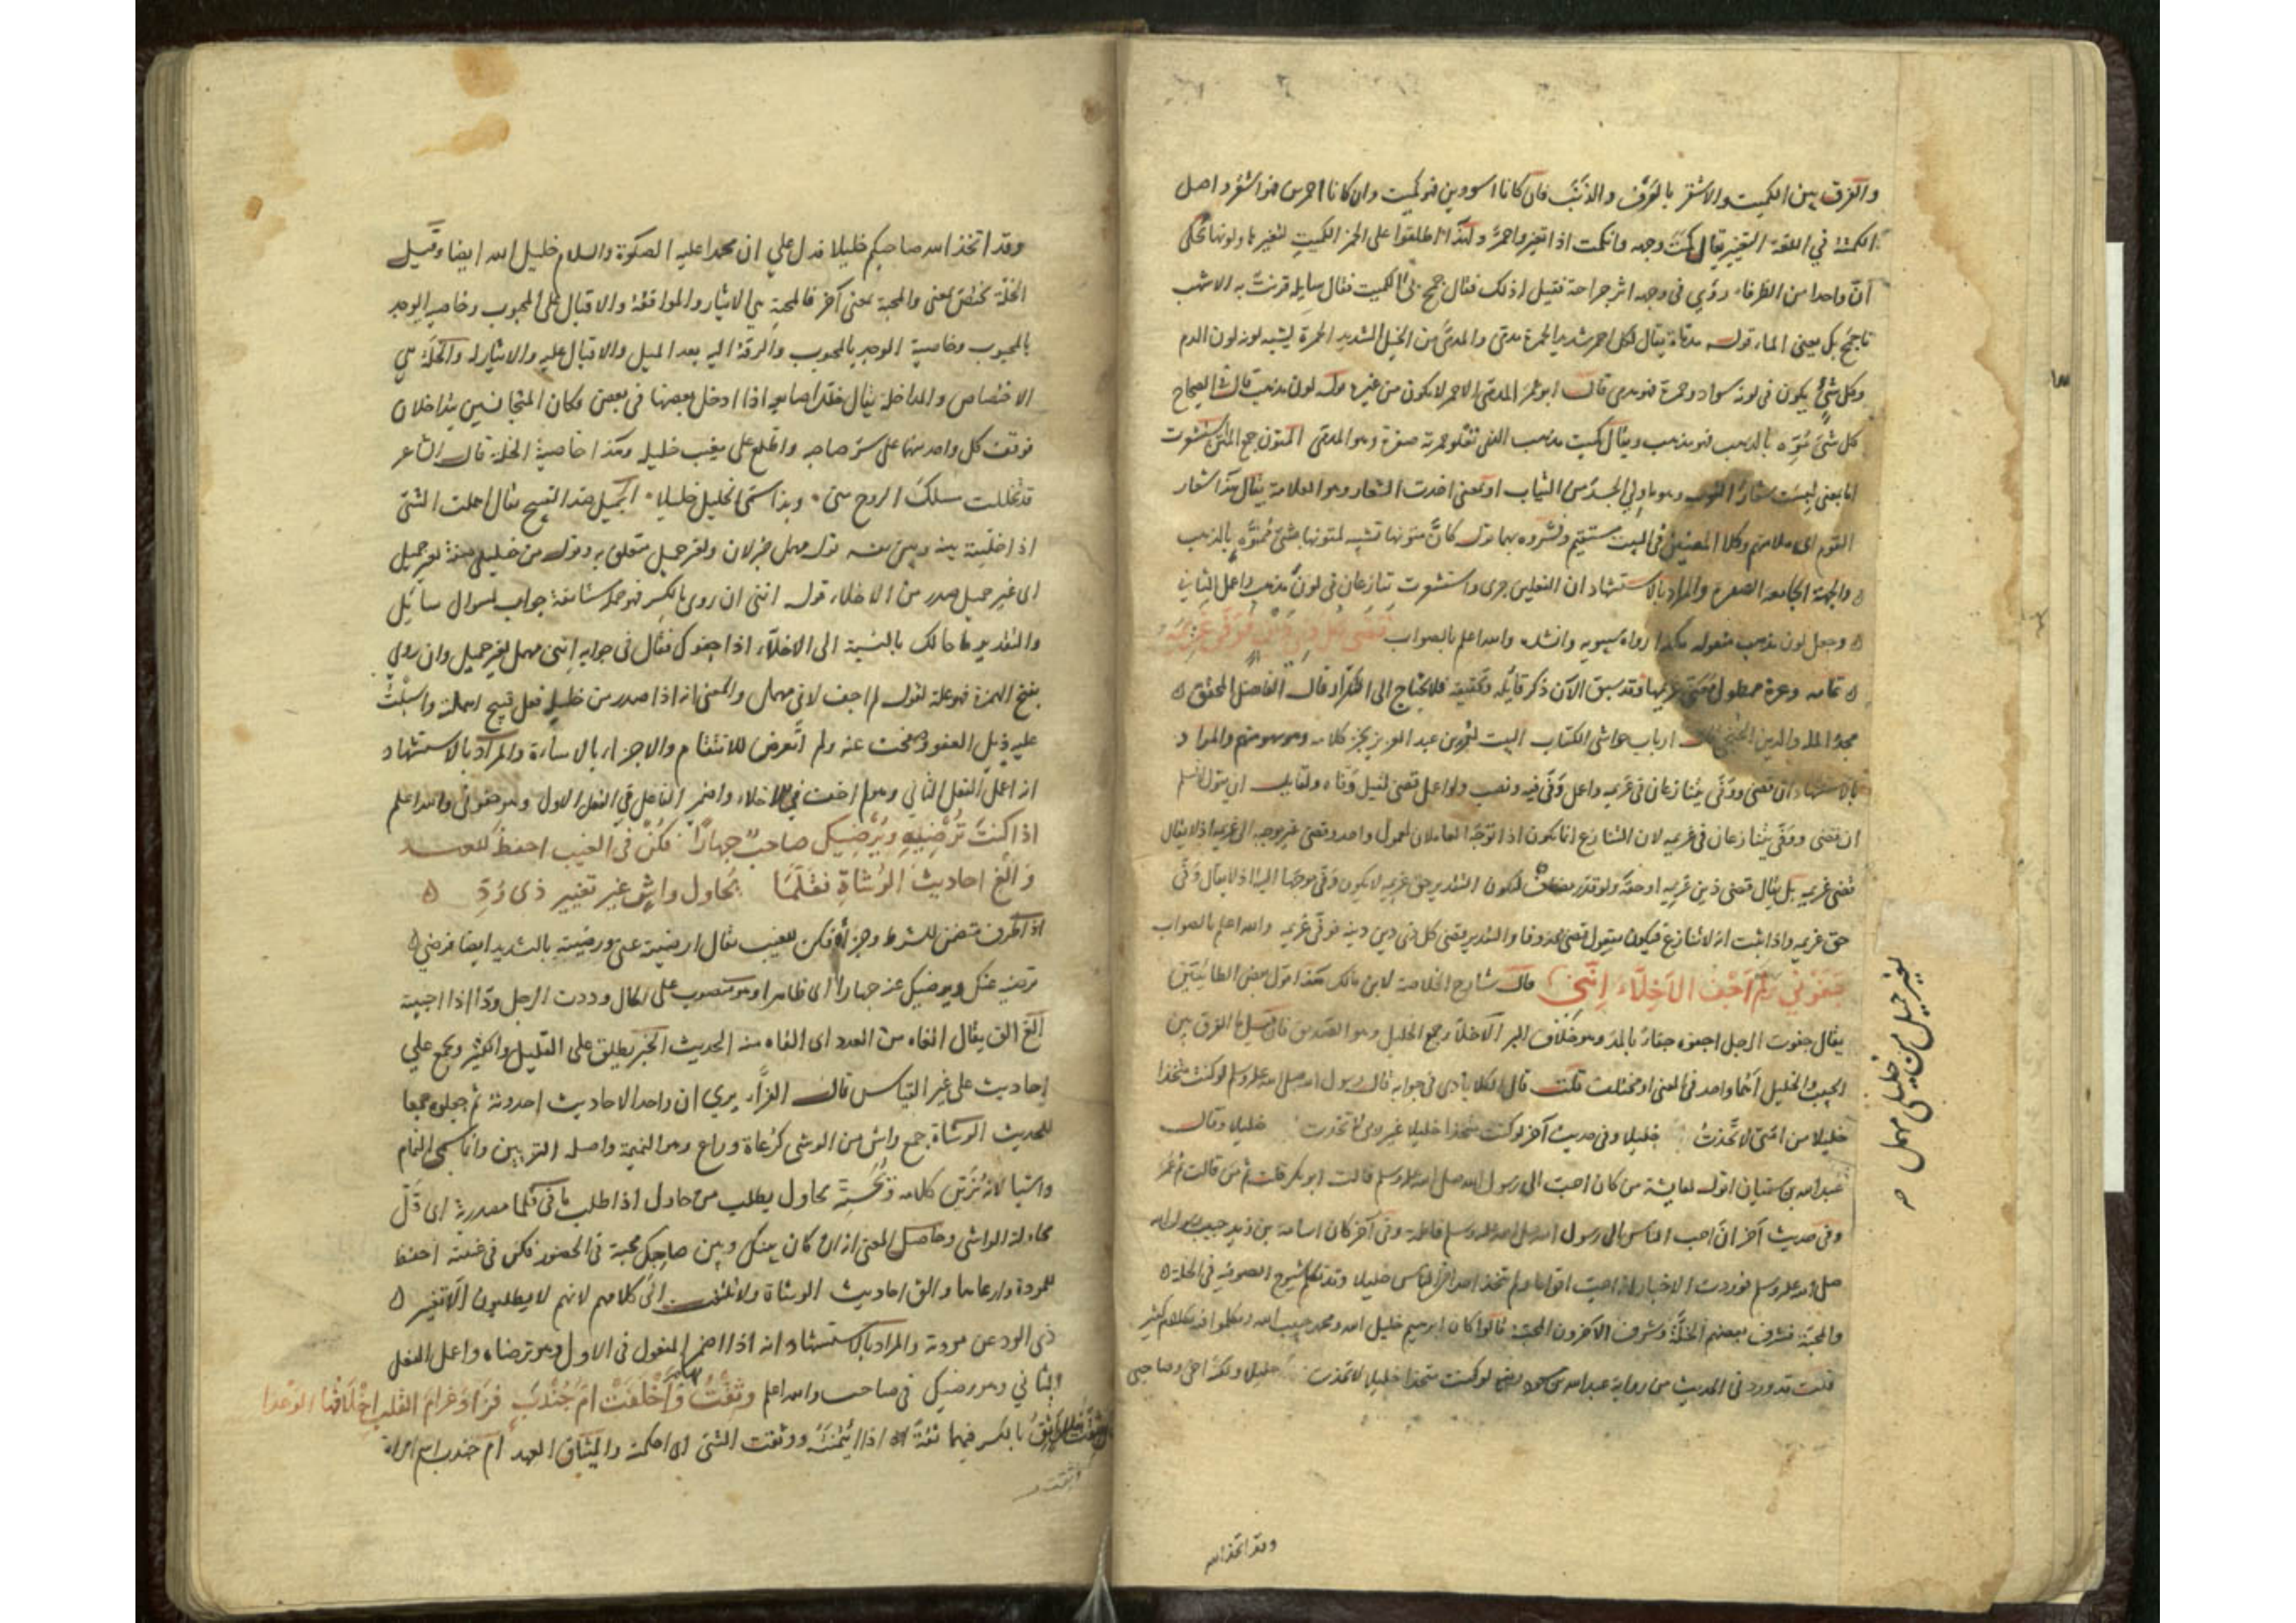 والفرق بين الكميت والاشقر بالعُرف والذنَب فان كانا اسودين فهو كميت وان كانا احمرين فهو اشقر واصل
الكمتة في اللغة التغيير يقال كمت وجهه وانكمت اذا تغير واحمرّ ولهذا اطلقوا على الخمر الكميت لتغيرها ولونها تحكى
انّ واحدا من الظرفاء رؤي في وجهه اثر جراحة فقيل له ذلك فقال جمح بي الكميت فقال سايله قرنتَ به الاشهب
لما جمح بك يعني الماء قوله مدماة يقال لكل احمر شديد الحمرة مدمّى والمدمّى من الخيل الشديد الحمرة يشبه لونه لون الدم
وكل شيءٍ يكون في لونه سواد وحمرة فهو مدمى قال ابو عمرو المدمّى الاحمر لا يكون من غيره قوله لون مذهب قال في الصحاح
كل شيء مُوّه بالذهب فهو مذهب ويقال كميت مذهب الذي تعلو حمرته صفرة وهو المدمّى المتون جمع المتن استشعرت
اما بمعنى لبست شعارا الثوب وهو ما ولي الجسد من الثياب او بمعنى اخذت الشعار وهو العلامة يقال هذا شعار
القوم اى علامتهم وكلا المعنيين في البيت مستقيم وفسّروه بهما قوله كانّ متونها تشبيه لمتونها بشيء مُموّه بالذهب
والجهة الجامعة الصفرة والمراد بالاستشهاد ان الفعلين جرى واستشعرت تنازعان في لون مذهب واعمل الثاني
وجعل لون مذهب مفعوله هكذا رواه سيبويه وانشده والله اعلم بالصواب قضى كل ذي دين فوفّى غريمه
تمامه وعزة ممطول مُعَنًّى غريمها وقد سبق الآن ذكر قائله وكتبته فلا يحتاج الى التكرار قال الفاضل المحقق
مجد الملة والدين ارباب حواشى الكتاب البيت لعمر بن عبد العزيز يخر كلامه وهو سهو منهم والمراد
بالاستشهاد ان قضى ووفّى يتنازعان في غريمه واعمل وَفّى فيه ونصب ولو اعمل قضى لقيل وَفّاه ولقايلٍ ان يقول لانسلم
ان قضى ووفّى يتنازعان في غريمه لان التنازع انما يكون اذا توجّه العاملان لمعمول واحد وقضى غير موجه الى غريمه اذ لا يقال
قضى غريمه بل يقال قضى دَين غريمه او حقه ولو قدر مضاف ليكون التقدير حق غريمه لا يكون وَفّى موجهًا اليه اذ لا يقال وَفّى
حق غريمه واذا ثبت انه لا تنازع فيكون مفعول قضى محذوفا والتقدير قضى كل ذي دين دينه فوفّى غريمه والله اعلم بالصواب
جَفَوْني ولم اَجْفُ الاَخِلّاءَ اِنّني قال شارح الخلاصة لابن مالك هذا قول بعض الطائيّين
يقال جفوت الرجل اجفوه جفاءً بالمد وهو خلاف البر الاخلاّء جمع الخليل وهو الصديق فان قيل ما الفرق بين
الحبيب والخليل أهما واحد في المعنى او مختلف قلت قال الكلاباذى في جوابه قال رسول الله صلى الله عليه وسلم لو كنت متخذا
خليلا من امتى لاتّخذتُ خليلا وفي حديث آخر لو كنت متخذا خليلا غير ربى لاتّخذت خليلا وقال
عبد الله بن سفيان اقول لعايشة من كان احبّ الى رسول الله صلى الله عليه وسلم قالت ابو بكر قلت ثم من قالت ثم عمر
وفي حديث آخر انّ احب الناس الى رسول الله صلى الله عليه وسلم فاطمة وفي آخر كان اسامة بن زيد حبيب رسول الله
صلى الله عليه وسلم فوردت الاخبار انه احبّ اقواما ولم تتخذ احدا من الناس خليلا وقد تكلم شيوخ الصوفية في الخلة
والمحبة فشرّف بعضهم الخلّة وشرف الآخرون المحبّة قالوا كان ابرهيم خليل الله ومحمد حبيب الله وتكلموا فيه بكلام كثير
قلت قد ورد في الحديث من رواية عبد الله بن مسعود لو كنت متخذا خليلا لاتخذت خليلا ولكنّه اخى وصاحبى
وقد اتخذ الله
لغير جميل من خليلي مهمل
وقد اتخذ الله صاحبكم خليلا فدل على ان محمدا عليه الصلوة والسلام خليل الله ايضا وقيل
الخلّة تختصّ بمعنى والمحبة بمعنى آخر فالمحبة هي الايثار والموافقة والاقبال على المحبوب وخاصيه الوجد
بالمحبوب وخاصية الوجد بالمحبوب والرقّة اليه بعد الميل والاقبال عليه والايثار له والخلّة هي
الاختصاص والمداخلة يقال خلّل اصابعه اذا ادخل بعضها في بعض وكان المتخاليين يتداخلان
فوقف كل واحد منهما على سرّ صاحبه واطّلع على مغيب خليله وهذا خاصية الخلة قال الشاعر
قد تخللت مسلكَ الروح منى وبذا سمّى الخليل خليلا الجميل ضد القبيح يقال اهملت الشئ
اذا خلّيته بينه وبين نفسه قوله مهمل خبر لان ولغير جميل متعلق به وقوله من خليلى صفة لغير جميل
اى غير جميل صدر من الاخلاء قوله انني ان روى بالكسر فهو جملة مستأنفة جواب لسوال سائل
والتقدير ما حالك بالنسبة الى الاخلّاء اذا جفوك فقال في جوابه اننى مهمل لغير جميل وان روي
بفتح الهمزة فهو علة لقوله لم اجف لانى مهمل والمعنى انه اذا صدر من خليلي فعل قبيح اهملته واسبلتُ
عليه ذيل العفو وصفحت عنه ولم اتعرض للانتقام والاجزاء بالاساءة والمراد بالاستشهاد
انه اعمل الفعل الثاني وهو لم اجف في الاخلاء واضمر الفاعل في الفعل الاول وهو جفوني والله اعلم
اذا كنتَ تُرْضِيهِ ويُرْضِيكَ صاحبٌ جهارًا فكُنْ في الغيب احفظ للعهد
وَاَلْغِ احاديثَ الوُشاةِ فقلّما يُحاول واشٍ غير تغيير ذى وُدِّ
اذا ظرف متضمن للشرط وجزاؤه فكن للغيب يقال ارضيته عنى ورضيته بالتشديد ايضا فرضي
ترضيه عنك ويرضيك عنه جهارا اى ظاهرا وهو منصوب على الحال ووددت الرجل ودّا اذا احببته
اَلغِ الق يقال الغاه من العدد اى القاه منه الحديث الخبر يطلق على القليل والكثير ويجمع على
احاديث على غير القياس قال الفرّاء يرى ان واحد الاحاديث احدوثة ثم جعلوه جمعا
للحديث الوشاة جمع واشٍ من الوشى كرُعاة وراعٍ وهو النميمة واصله التزيين وانما سمّى النمام
واشيا لانه يُزَيّن كلامه ويُحَسّنه يحاول يطلب من حاول اذا طلب ما في قلّما مصدرية اى قلّ
محاولة الواشى وحاصل المعنى انه ان كان بينك وبين صاحبك محبة في الحضور فكن في غيبته احفظ
للمودة وارعاها والق احاديث الوشاة ولا تلتفت الى كلامهم لانهم لا يطلبون الا تغيير
ذى الود عن مودته والمراد بالاستشهاد انه اذا اضمر المفعول في الاول وهو ترضاه واعمل الفعل
الثاني وهو يرضيك في صاحب والله اعلم وثِقْتُ وَاَخْلَفَتْ اُمّ جُنْدَب فزَادَ غرامَ القلب اِخْلَافُها الوَعْدا
وثقتُ بفلان اَثِقُ بالكسر فيهما ثقةً اذا ائتمنته ووثقت الشئ اى احكمته والميثاق العهد ام جندب اسم امراة